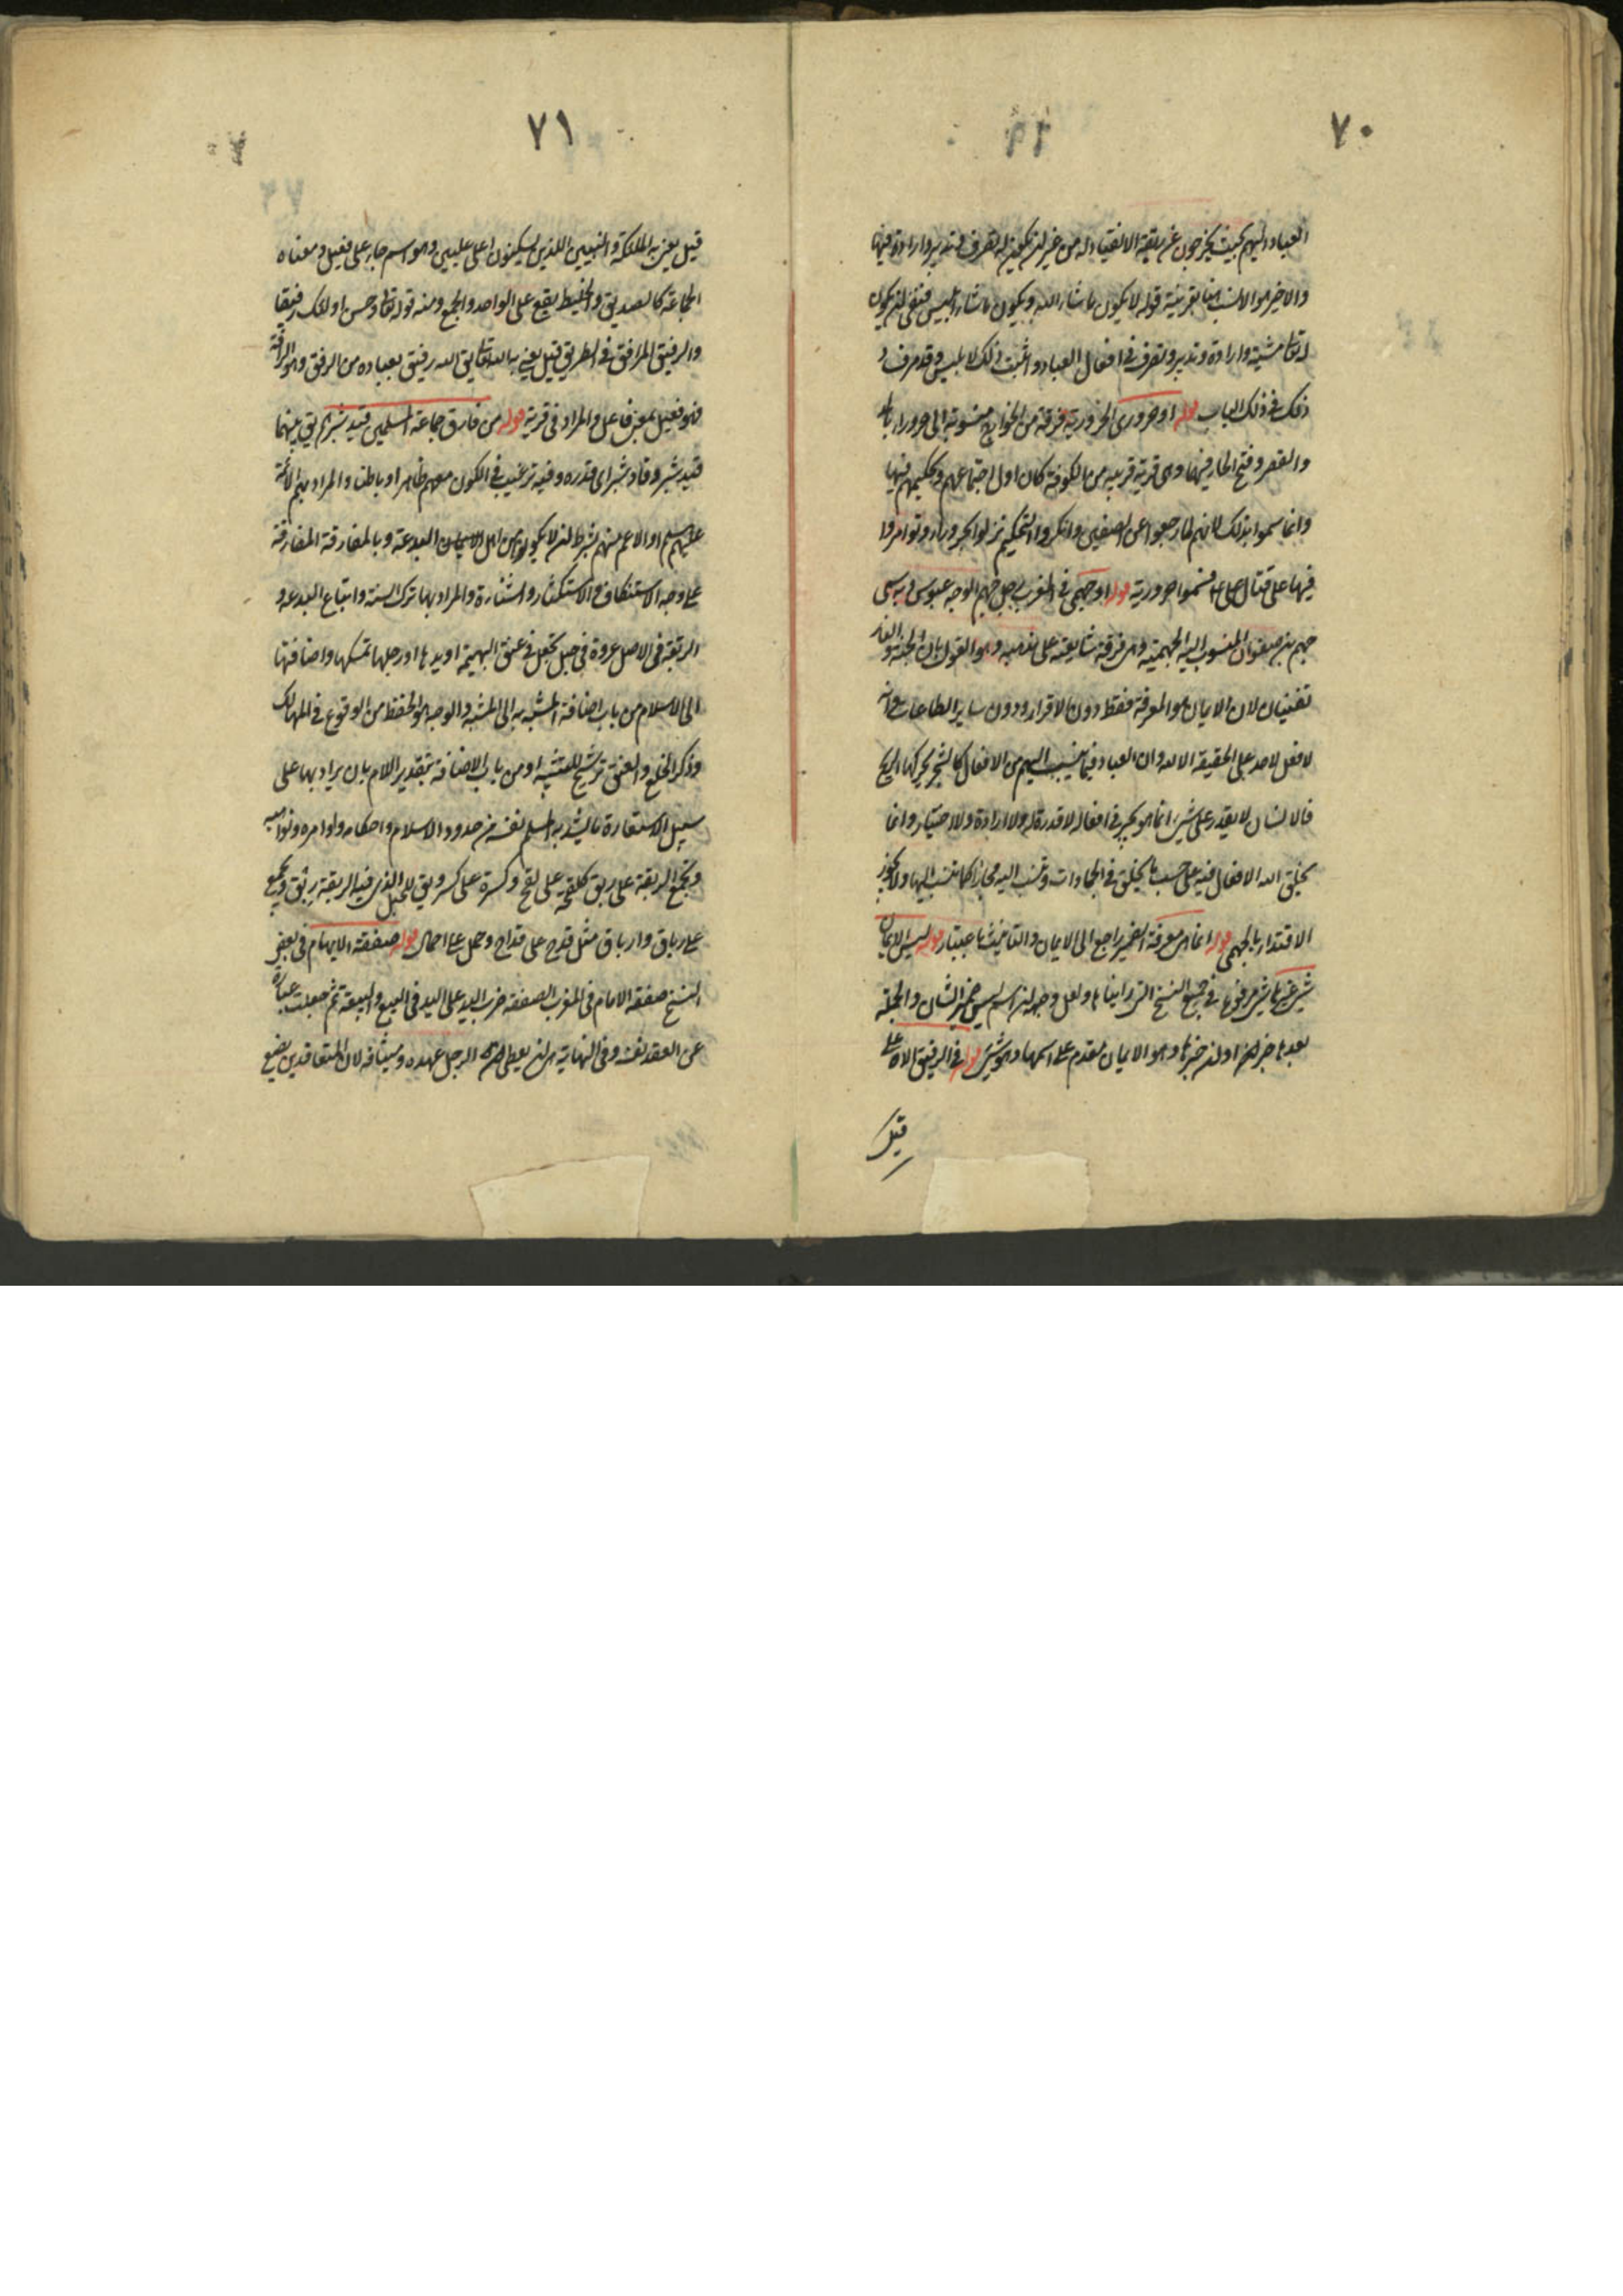 ٧٠
العباد اليهم بحيث يخرجون عن ربقة الانقياد له من غير ان يكون له تصرف و تدبير وارادة فيها
والاخير هو الانسب هنا بقرينة قوله لا يكون ما شاء الله ويكون ما شاء ابليس فنفى ان يكون
له تعالى مشية وارادة وتدبير وتصرف في افعال العباد واثبت ذلك لابليس وقد مر
ذلك في ذلك الباب قوله او حروري الحرورية فرقة من الخوارج منسوبة الى حروراء بالمد
والقصر وفتح الحاء فيهما وهي قرية قريبة من الكوفة كان اول اجتماعهم وتحكيمهم فيها
وانما سموا بذلك لانهم لما رجعوا عن الصفين وانكروا التحكيم نزلوا بحروراء وتوامروا
فيها على قتال علي ع فسموا حرورية قوله او جهمي في المغرب رجل جهم الوجه عبوس وبه سمى
جهم بن صفوان المنسوب اليه الجهمية وهي فرقة شايعته على مذهبه وهو القول بان الجنة والنار
تفنيان لان الايمان هو المعرفة فقط دون الاقرار ودون ساير الطاعات وانه
لا فعل لاحد على الحقيقة الا لله وان العباد فيما ينسب اليهم من الافعال كالشجر يحركها الريح
فالانسان لا يقدر على شيء انما هو مجبر في افعاله لا قدرة له ولا ارادة ولا اختيار وانما
يخلق الله الافعال فيه على حسب ما يخلق في الجمادات وتنسب اليه مجازا كما تنسب اليها ولا يجوز
الاقتداء بالجهمي قوله انما هي معرفة الضمير راجع الى الايمان والتانيث باعتبار قوله ليس الايمان
شيء غيرها شيء مرفوعا في جميع النسخ التي رايناها ولعل وجهه ان اسم ليس ضمير الشان والجملة
بعدها خبر لها او ان خبرها وهو الايمان مقدم على اسمها وهو شيء قوله في الرفيق الاعلى
قيل
٧١
قيل يعني به الملئكة والنبيين اللذين يسكنون اعلى عليين وهو اسم جاء على فعيل ومعناه
الجماعة كالصديق والخليط يقع على الواحد والجمع ومنه قوله تعالى وحسن اولئك رفيقا
والرفيق المرافق في الطريق قيل يعني به الله تعالى يق الله رفيق بعباده من الرفق وهو الرافة
فهو فعيل بمعنى فاعل والمراد في قربه قوله من فارق جماعة المسلمين قيد شبر هم يق بينهما
قيد شبر وقاد شبر اى قدره وفيه ترغيب في الكون معهم ظاهرا وباطنا والمراد بهم الائمة
عليهم السلم او الاعم منهم بشرط ان لا يكونوا من اهل البدعة وبالمفارقة المفارقة
على وجه الاستنكاف والاستكثار والمراد بها ترك السنة واتباع البدعة و
الربقة في الاصل عروة في حبل تجعل في عنق البهيمة او يدها او رجلها تمسكها واضافتها
الى الاسلام من باب اضافة المشبه به الى المشبه والوجه هو الحفظ من الوقوع في المهالك
وذكر الخلع والعنق ترشيح للتشبيه او من باب الاضافة بتقدير اللام بان يراد بها على
سبيل الاستعارة ما يشد به المسلم نفسه من حدود الاسلام واحكامه واوامره ونواهيه
وتجمع الربقة على ربق كلقحة على لقح وكسرة على كسر ويق للحبل الذي فيه الربقة رِبق ويجمع
على رباق وارباق مثل قدح على قداح وحمل على احمال قوله صفقة الابهام في بعض
النسخ صفقة الامام في المغرب الصفقة ضرب اليد على اليد في البيع والبيعة ثم جعلت عبارة
عن العقد نفسه وفي النهاية هي ان يعطى الرجل الرجل عهده وميثاقه لان المتعاقدين يضع